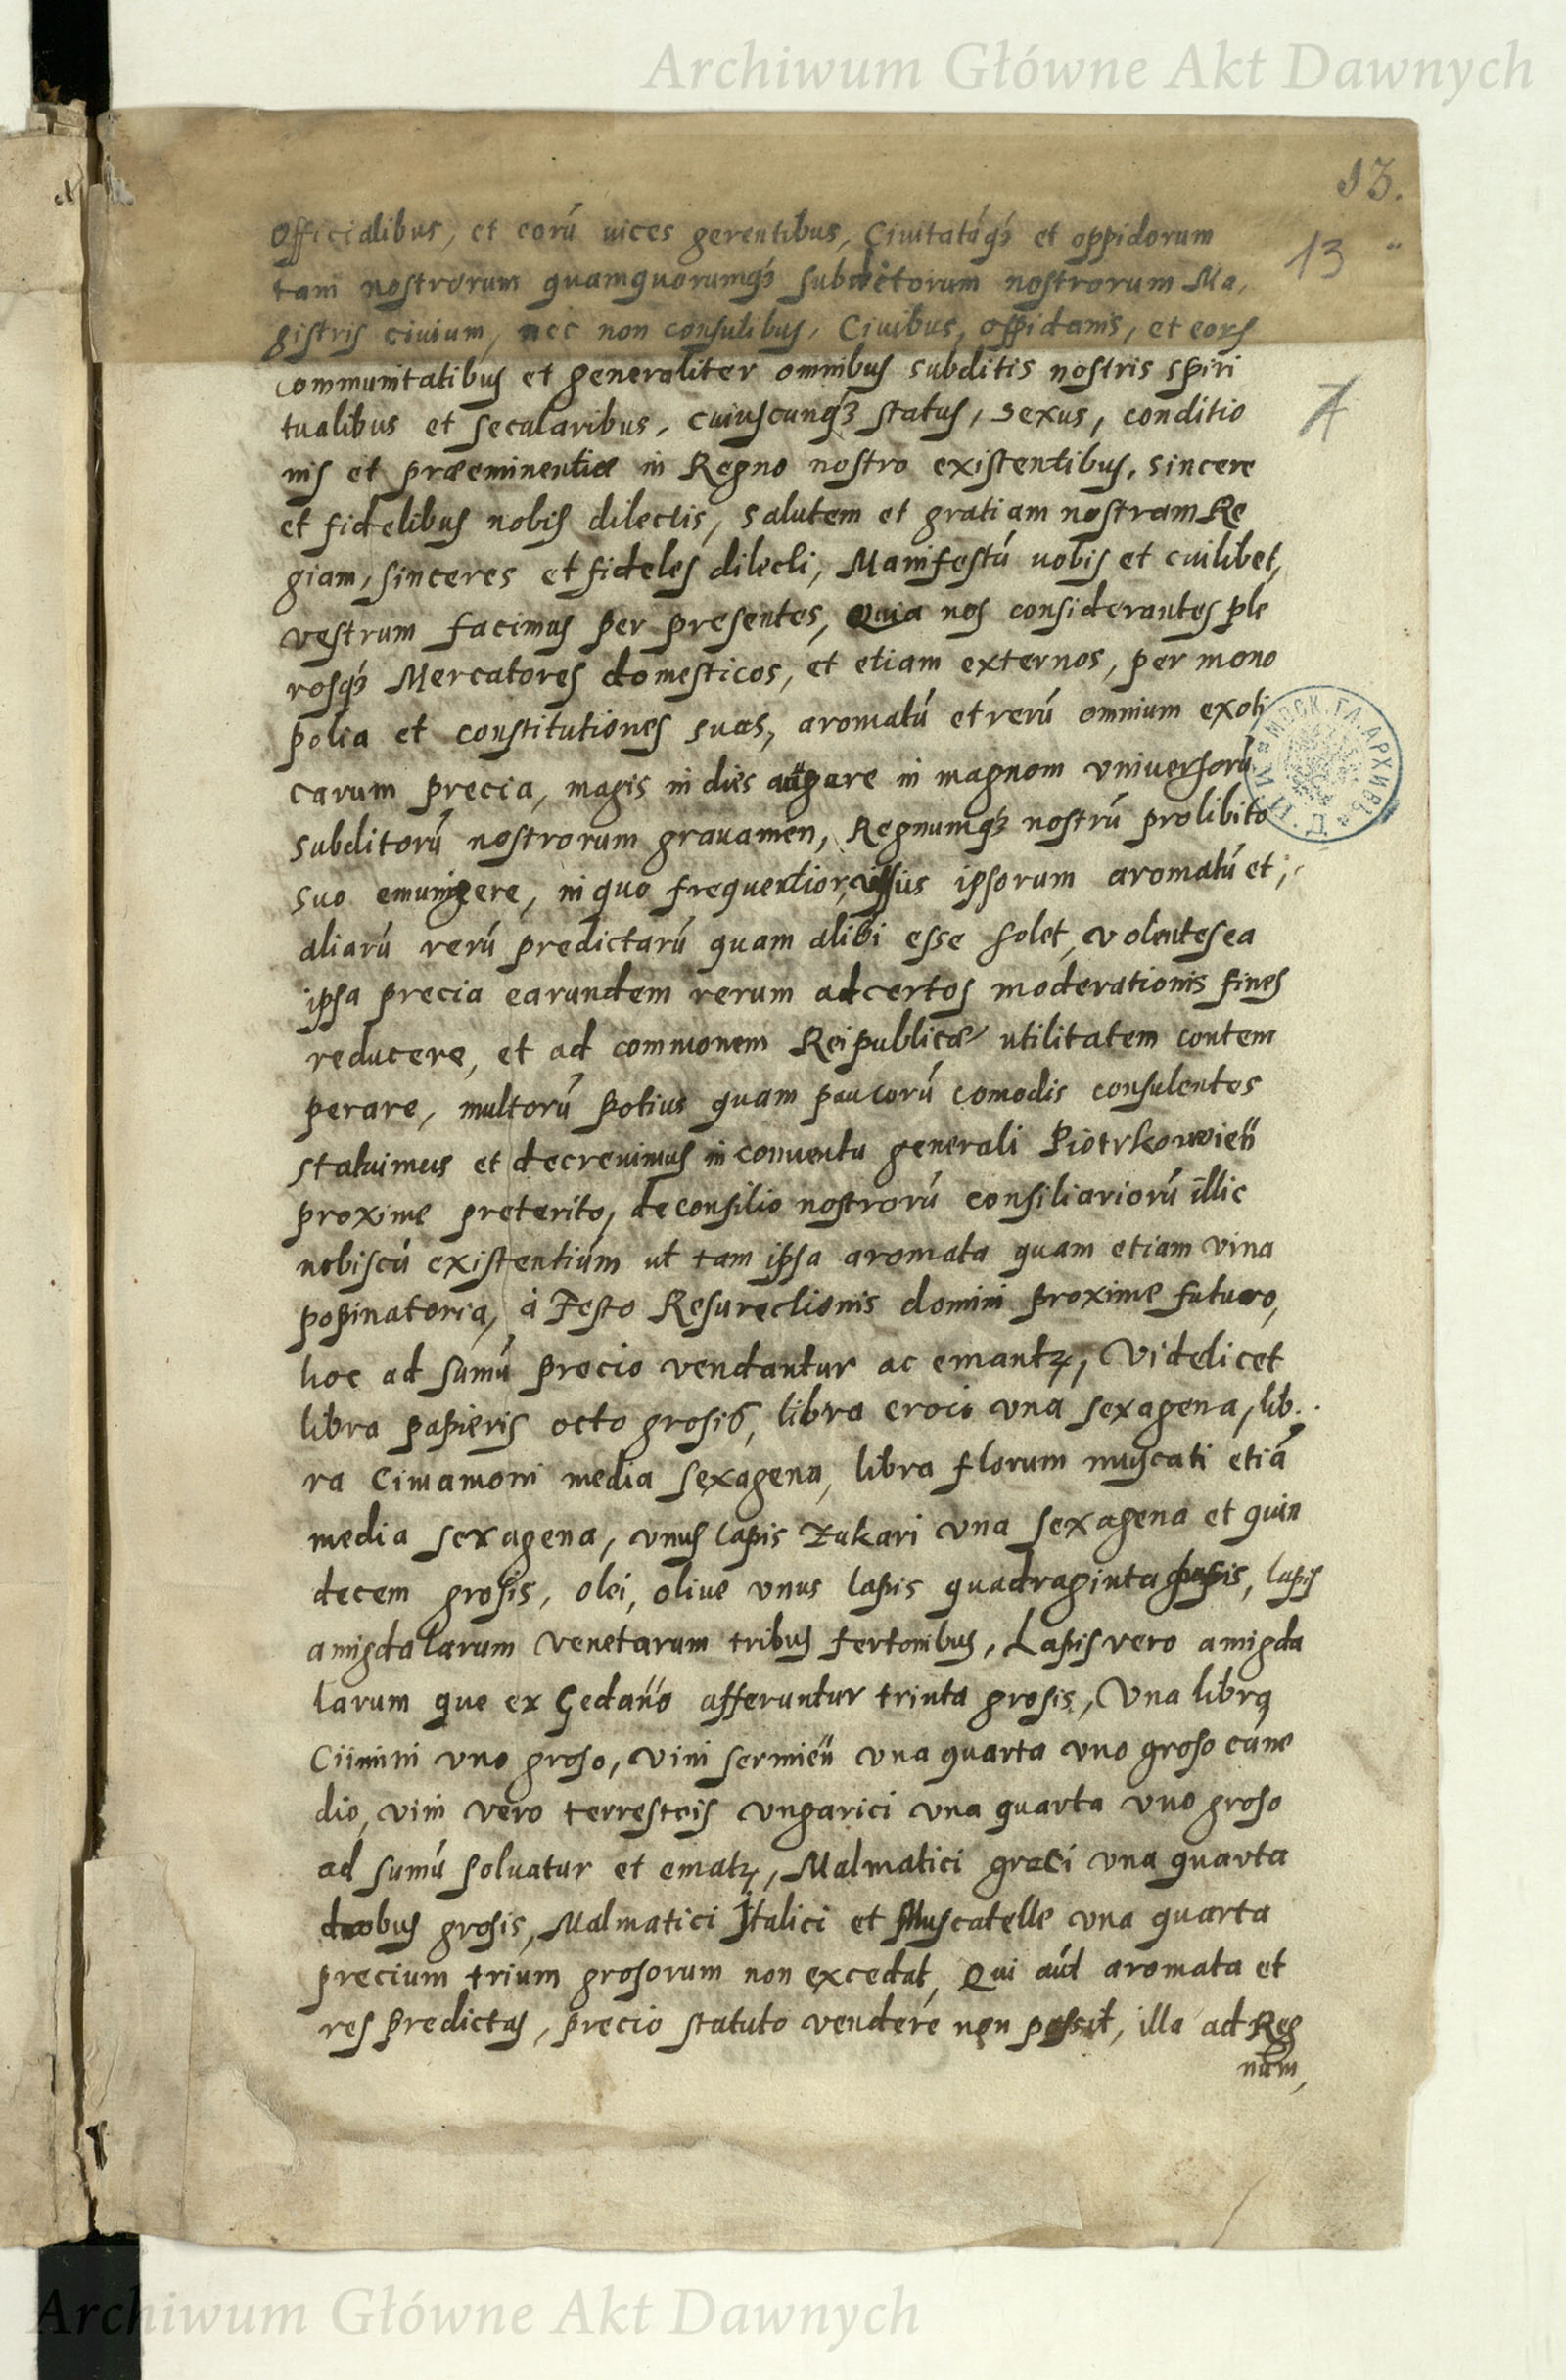 Archiwum Główne Akt Dawnych
13.
Officialibus, et eorū uices gerentibus, Ciuitatūqꝫ et oppidorum
13
tam nostrorum quamquorumqꝫ subditorum nostrorum Ma,
gistris ciuium, nec non consulibus, Ciuibus, oppidanis, et eorꝫ
communitatibus et generaliter omnibus subditis nostris spiri
tualibus et secularibus, cuiuscunqꝫ status, sexus, conditio
nis et præeminentiæ in Regno nostro existentibus, sincere
et fidelibus nobis dilectis, salutem et gratiam nostram Re
giam, sinceres et fideles dilecti, Manifestū uobis et cuilibet,
vestrum facimus per presentes, Quia nos considerantes ple
rosqꝫ Mercatores domesticos, et etiam externos, per mono
polia et constitutiones suas, aromatū et rerū omnium exoti
carum precia, magis in dies augare in magnom vniuersorū
subditorū nostrorum grauamen, Regnumqꝫ nostrū prolibito
suo emungere, in quo frequentior, ipsorum aromatū et,
aliarū rerū predictarū quam alibi esse solet, volentes ea
ipsa precia earundem rerum ad certos moderationis fines
reducere, et ad commonem Reipublicæ utilitatem contem
perare, multorū potius quam paucorū comodis consulentes
statuimus et decreuimus in conuentu generali Piotrkowień
proxime preterito, de consilio nostrorū consiliariorū illic
nobiscū existentiūm ut tam ipsa aromata quam etiam vina
popinatoria, à Festo Resurectionis domini proxime futuro,
hoc ad sumū precio vendantur ac emantꝫ, Videlicet
libra papieris octo grosis, libra croci vna sexagena, lib.
ra Cimamoni media sexagena, libra florum muscati etiā
media sexagena, vnus lapis Zukari vna sexagena et quin
decem grosis, olei, oliue vnus lapis quadraginta grosis, lapis
amigdalarum venetarum tribus fertonibus, Lapis vero amigda
larum que ex Gedano afferuntur trinta grosis, Vna libra
Ciimini vno groso, vini sermień vna quarta vno groso cūme
dio, vini vero terrestris vngarici vna quarta vno groso
ad sumū soluatur et ematꝫ, Malmatici graci vna quarta
duobus grosis, Malmatici Italici et Muscatelle vna quarta
precium trium grosorum non excedat, Qui aūt aromata et
res predictas, precio statuto vendere non possit, illa ad Reg
num,
Archiwum Główne Akt Dawnych